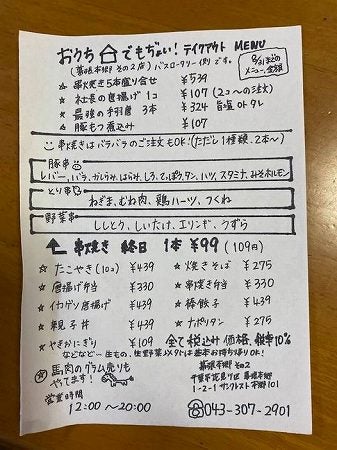 おうち🏠でもぢょい! テイクアウト MENU
(幕張本郷 その2店) バスロータリー側 です。
8/31までの
メニュー、金額
☆ 串焼き5本盛り合せ ¥539
☆ 社長の唐揚げ 1コ ¥107 (2コ〜の注文)
☆ 最強の手羽唐 3本 ¥324 旨塩 or タレ
☆ 豚もつ煮込み ¥107
串焼きはバラバラのご注文もOK!(ただし1種類、2本〜)
豚串
レバー、バラ、かしら、ハラミ、しろ、てっぽう、タン、ハツ、スタミナ、みそホルモン
とり串
ねぎま、むね肉、鶏ハーツ、つくね
野菜串
ししとう、しいたけ、エリンギ、うずら
串焼き 終日 1本 ¥99 (109円)
☆ たこやき(10コ) ¥439 ☆ 焼きそば ¥275
☆ 唐揚げ弁当 ¥330 ☆ 串焼き弁当 ¥330
☆ イカゲソ唐揚げ ¥439 ☆ 棒餃子 ¥439
☆ 親子丼 ¥439 ☆ ナポリタン ¥275
☆ やきおにぎり ¥109 全て税込み価格、税率10%
などなど〜 生もの、生野菜メタトは基本お持ち帰りOK!
☆ 馬肉のグラム売りも
やってます!
営業時間
12:00 〜 20:00
幕張本郷 その2
千葉市花見川区 幕張本郷
1-2-1 サンクレスト本郷101
☎043-307-2901